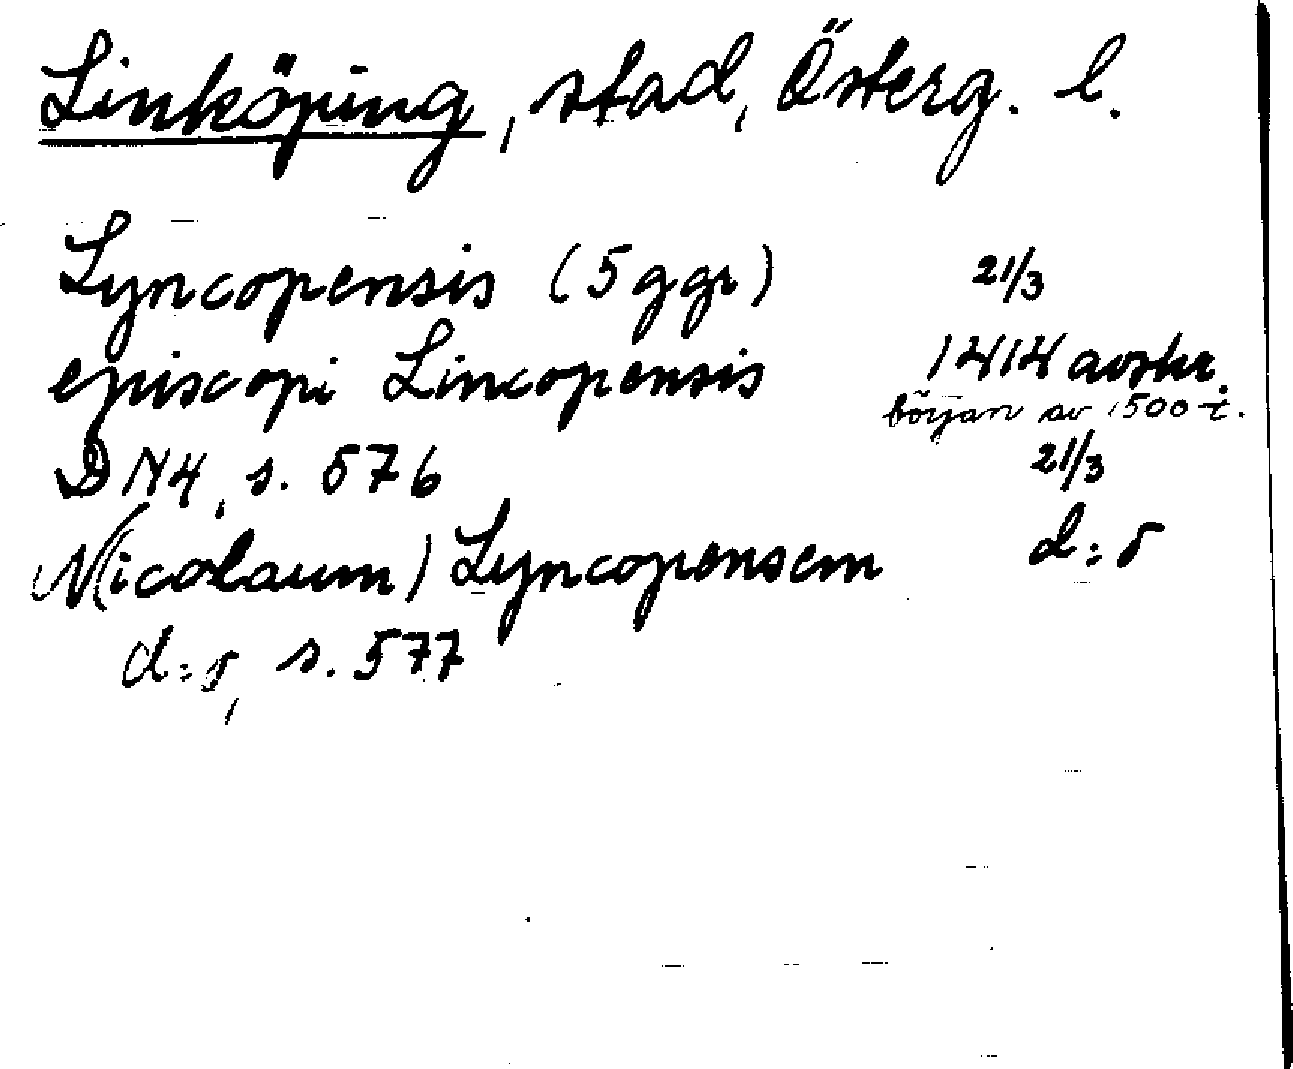 Linköping, stad, Österg. l.
Lyncopensis (5 ggr) 21/3
episcopi Lincopensis 1414 avskr.
början av 1500-t.
DN4, s. 576 21/3
N(icolaum) Lyncopensem d:o
d:o, s. 577